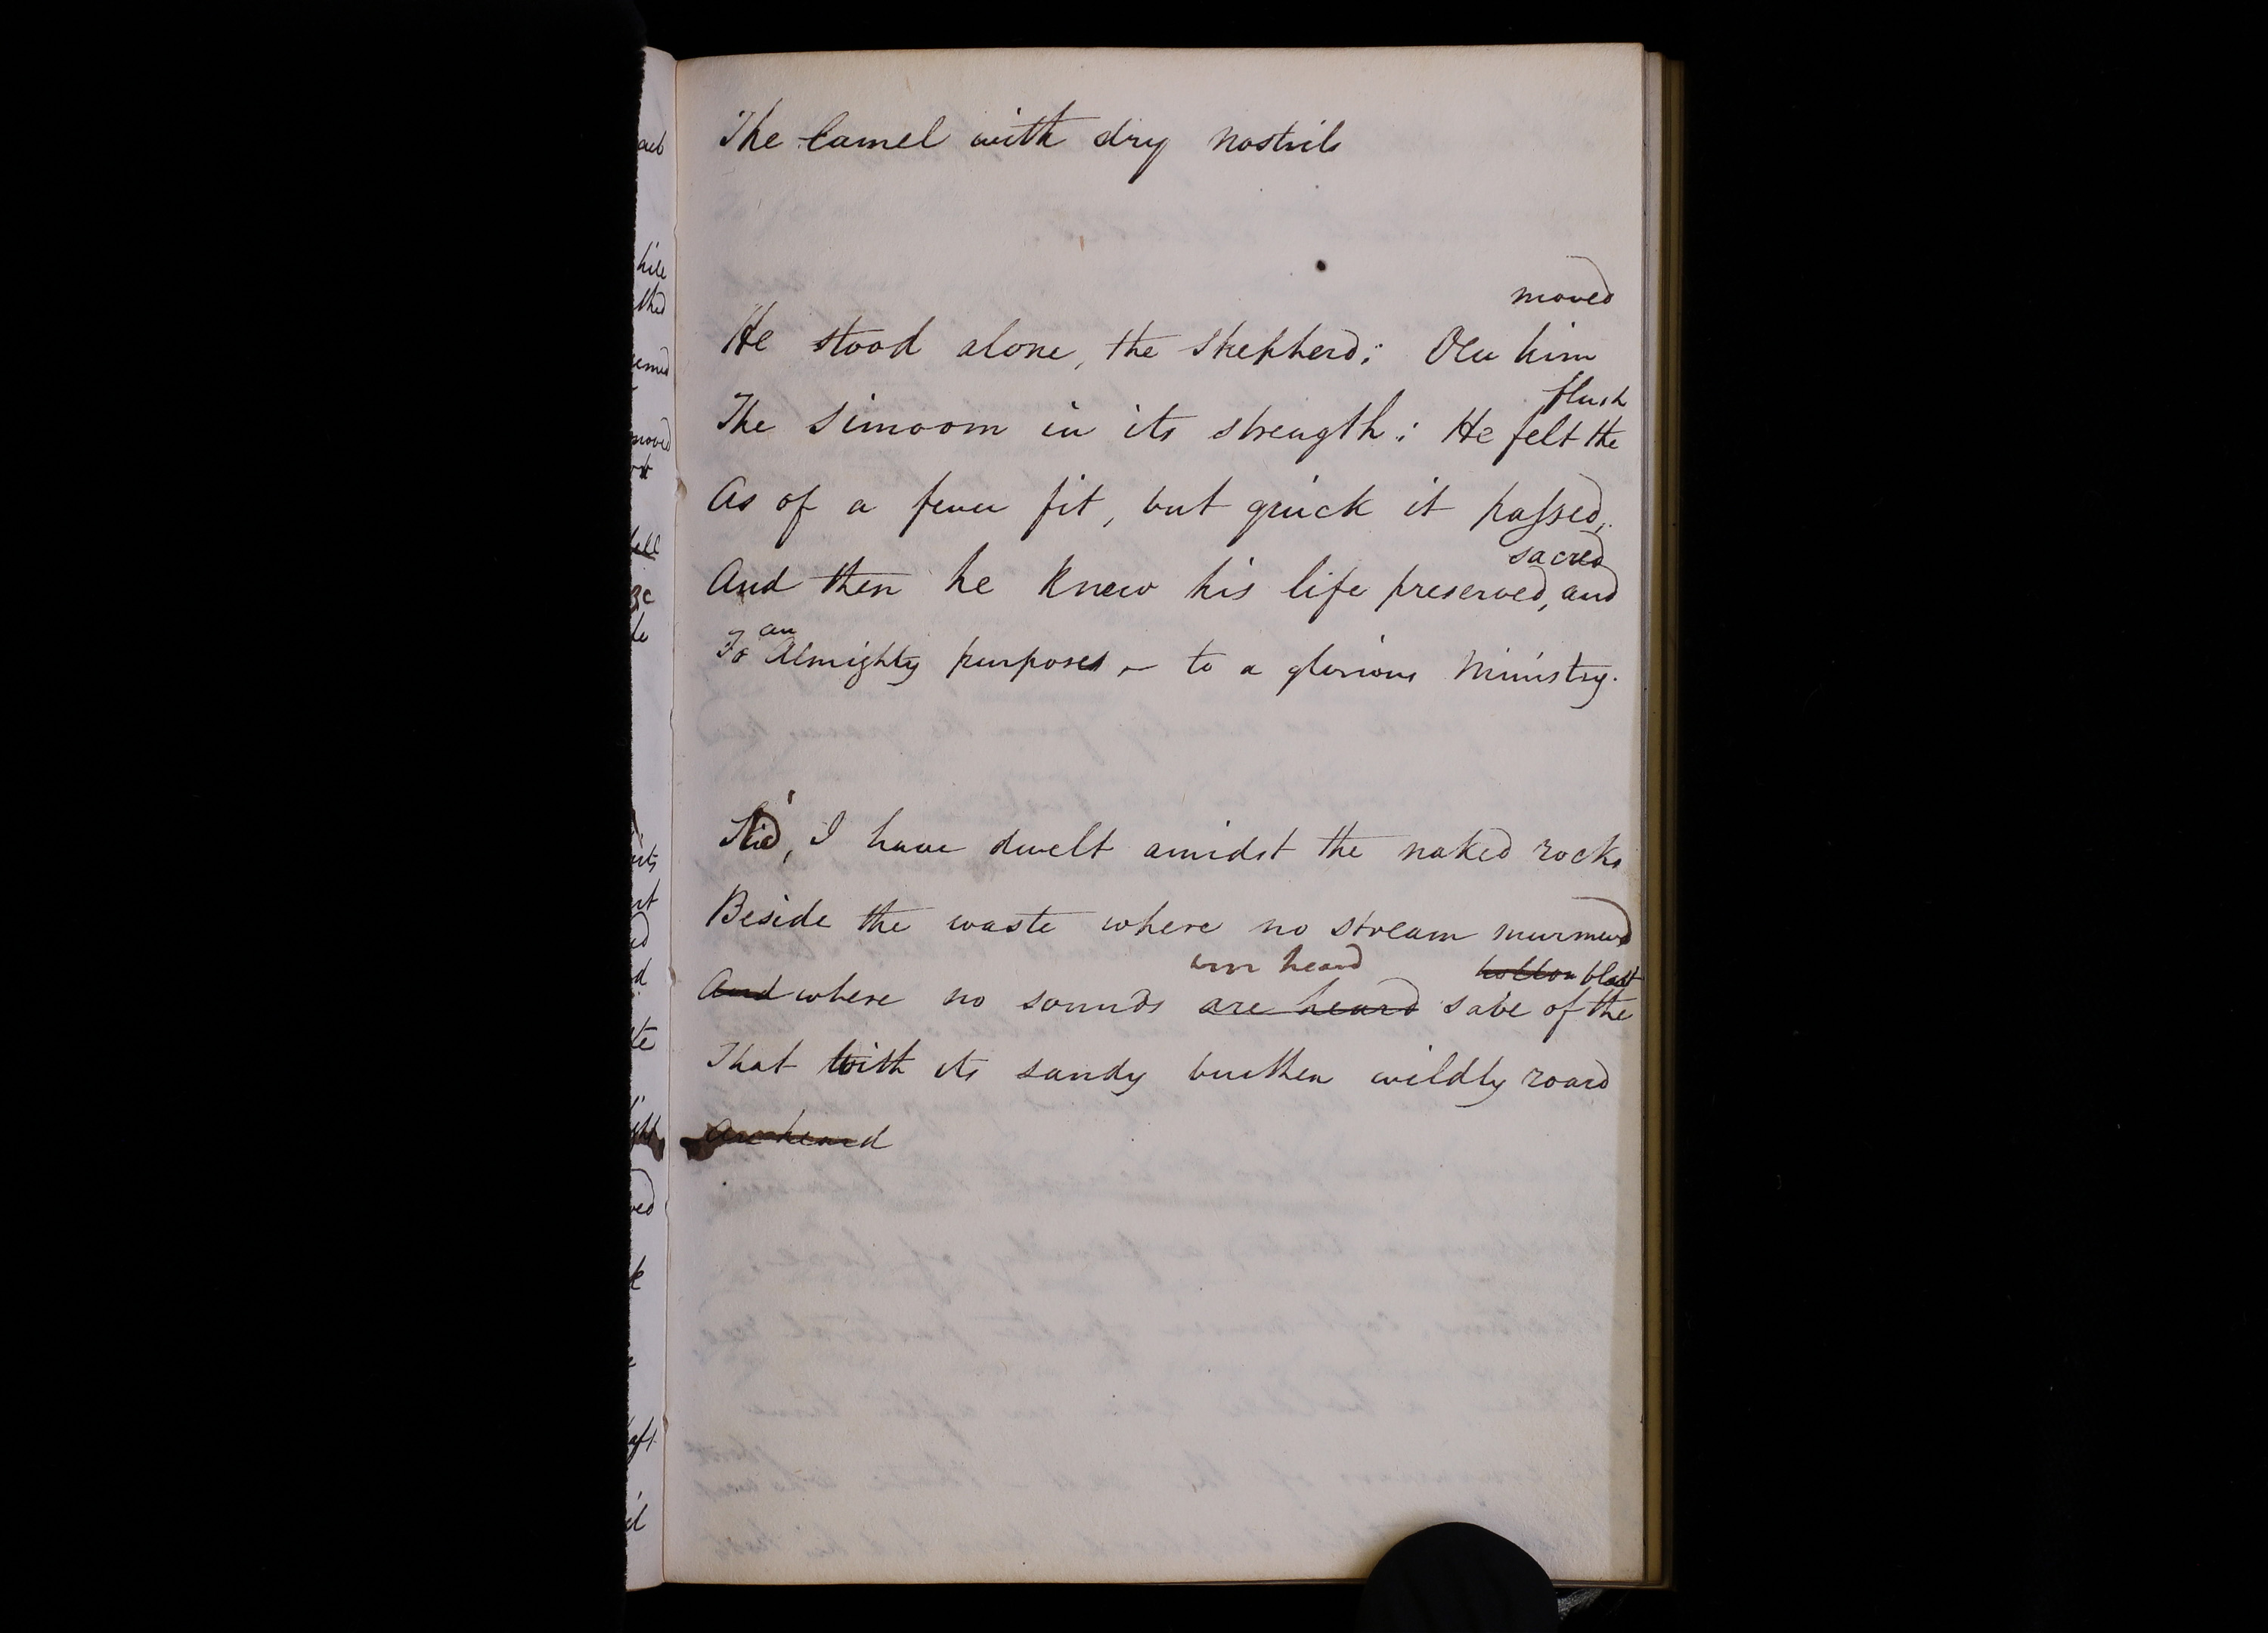 The Camel with dry nostrils
moved
He stood alone, the Shepherd; Oer him
flush
The Simoom in its strength: He felt the
As of a fever fit, but quick it passed,
sacred
And then he knew his life preserved, and
an
To Almighty purposes, – to a glorious Ministry.
I have dwelt amidst the naked rocks
Beside the waste where no stream murmurd
were heard hollow blast
And where no sounds are heard save of the
That with its sandy burthen wildly roard
Are heard